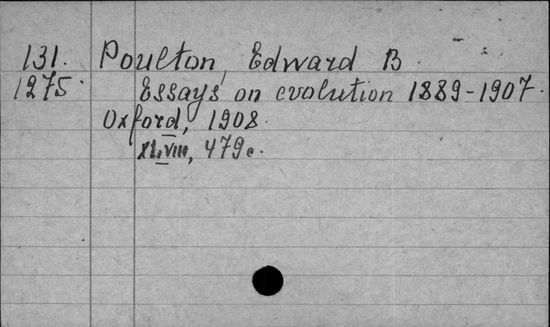 131. Poulton, Edward B.
1275. Essays on evolution 1889-1907.
Oxford, 1908.
XLVIII, 479 c.